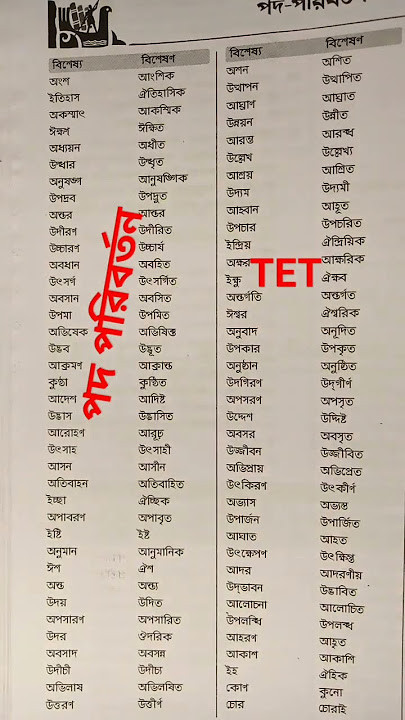 পদ-পরিবর্তন
বিশেষ্য বিশেষণ
অংশ আংশিক
ইতিহাস ঐতিহাসিক
অকস্মাৎ আকস্মিক
ঈক্ষণ ঈক্ষিত
অধ্যয়ন অধীত
উদ্ধার উদ্ধৃত
অনুষঙ্গ আনুষঙ্গিক
উপদ্রব উপদ্রুত
অন্তর আন্তর
উদীরণ উদীরিত
উচ্চারণ উচ্চার্য
অবধান অবহিত
উৎসর্গ উৎসর্গিত
অবসান অবসিত
উপমা উপমিত
অভিষেক অভিষিক্ত
উদ্ভব উদ্ভূত
আক্রমণ আক্রান্ত
কুণ্ঠা কুণ্ঠিত
আদেশ আদিষ্ট
উদ্ভাস উদ্ভাসিত
আরোহণ আরূঢ়
উৎসাহ উৎসাহী
আসন আসীন
অতিবাহন অতিবাহিত
ইচ্ছা ঐচ্ছিক
অপাবরণ অপাবৃত
ইষ্টি ইষ্ট
অনুমান আনুমানিক
ঈশ ঐশ
অন্ত অন্ত্য
উদয় উদিত
অপসারণ অপসারিত
উদর ঔদরিক
অবসাদ অবসন্ন
উদীচী উদীচ্য
অভিলাষ অভিলষিত
উত্তরণ উত্তীর্ণ
বিশেষ্য বিশেষণ
অশন অশিত
উত্থাপন উত্থাপিত
আঘ্রাণ আঘ্রাত
উন্নয়ন উন্নীত
আরম্ভ আরব্ধ
উল্লেখ উল্লেখ্য
আশ্রয় আশ্রিত
উদ্যম উদ্যমী
আহ্বান আহূত
উপচার উপচরিত
ইন্দ্রিয় ঐন্দ্রিয়িক
অক্ষর আক্ষরিক
ইক্ষু ঐক্ষব
অন্তর্গতি অন্তর্গত
ঈশ্বর ঐশ্বরিক
অনুবাদ অনূদিত
উপকার উপকৃত
অনুষ্ঠান অনুষ্ঠিত
উদগিরণ উদ্‌গীর্ণ
অপসরণ অপসৃত
উদ্দেশ উদ্দিষ্ট
অবসর অবসৃত
উজ্জীবন উজ্জীবিত
অভিপ্রায় অভিপ্রেত
উৎকিরণ উৎকীর্ণ
অভ্যাস অভ্যস্ত
উপার্জন উপার্জিত
আঘাত আহত
উৎক্ষেপণ উৎক্ষিপ্ত
আদর আদরণীয়
উদ্‌ভাবন উদ্ভাবিত
আলোচনা আলোচিত
উপলব্ধি উপলব্ধ
আহরণ আহৃত
আকাশ আকাশি
ইহ ঐহিক
কোণ কুনো
চোর চোরাই
পদ পরিবর্তন
TET